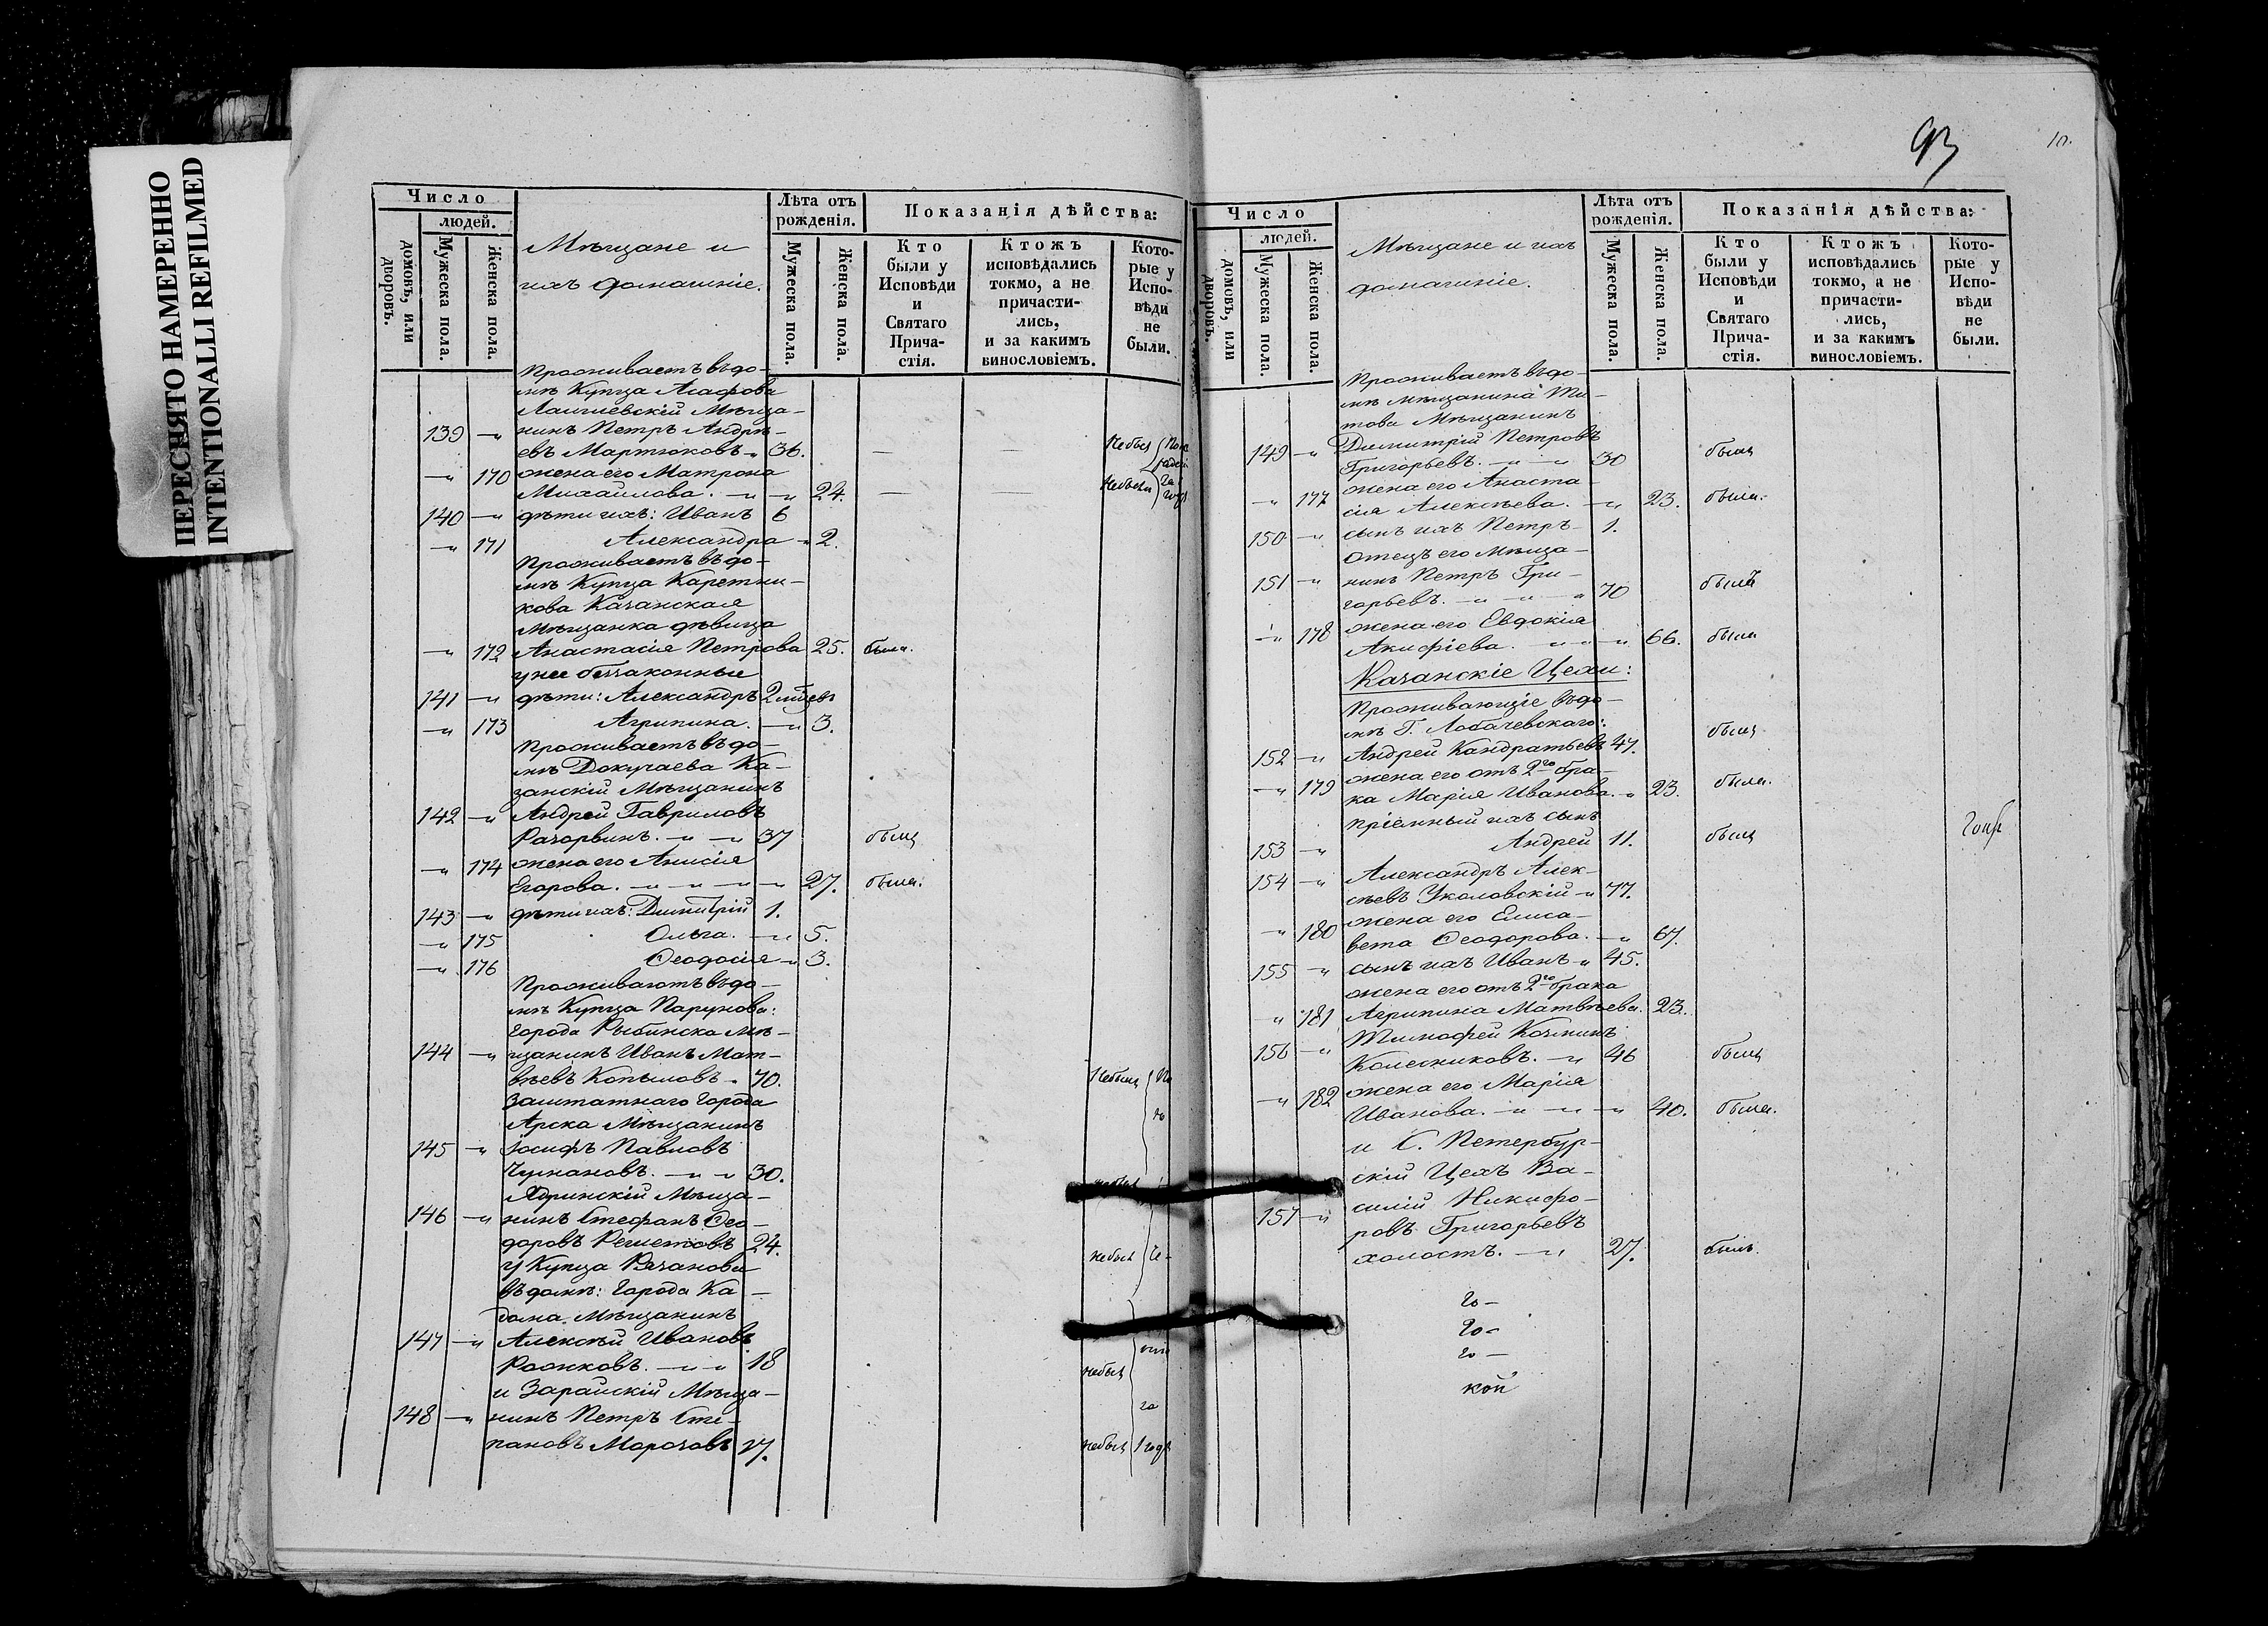 ПЕРЕСНЯТО НАМЕРЕННО
INTENTIONALLI REFILMED
Число
людей.
домовъ, или дворовъ.
Мужеска пола.
Женска пола.
Мѣщане и
ихъ домашніе.
Лѣта отъ рожденія.
Мужеска пола.
Женска пола.
Показанія дѣйства:
Кто были у Исповѣди и Святаго Прича-стія.
Ктожъ исповѣдались токмо, а не причасти-лись, и за какимъ винословіемъ.
Кото-рые у Испо-вѣди не были.
Проживаетъ въ до-
мѣ Купца Асафова
Лаишевскій Мѣща-
139 - нинъ Петръ Андрѣ-
евъ Мартюковъ 36. Небылъ
- 170 жена его Матрона
Михаилова. 24. Небыла
140 - дѣти ихъ: Иванъ 6
- 171 Александра 2.
Проживаетъ въ до-
мѣ Купца Каретни-
кова Казанская
Мѣщанка дѣвица
- 172 Анастасія Петрова 25. была.
у нее беззаконные
141 - дѣти: Александръ 2
- 173 Агрипина. 3.
Проживаетъ въ до-
мѣ Докучаева Ка-
занскій Мѣщанинъ
142 - Андрей Гавриловъ
37 былъ
- 174 жена его Анисія
Егорова. 27. была.
143 - дѣти ихъ: Димитрій 1.
- 175 Ольга. 5.
- 176 Ѳеодосія 3.
Проживаютъ въ до-
мѣ Купца Парунова:
города Рыбинска мѣ-
144 - щанинъ Иванъ Мат-
вѣевъ Копыловъ 70. Небылъ
Заштатнаго города
Арска Мѣщанинъ
145 - Іосифъ Павловъ
Чумановъ. 30. небылъ
Ядринскій Мѣща-
146 - нинъ Стефанъ Ѳео-
доровъ Решетовъ 24. небылъ
У Купца Рязанова
въ домѣ: Города Ка-
дома Мѣщанинъ
147 - Алексѣй Ивановъ
Рожковъ. 18 небылъ
и Зарайскій Мѣща-
148 - нинъ Петръ Сте-
пановъ Морозовъ 17. небылъ 1 годъ
93
10.
Число
людей.
домовъ, или дворовъ.
Мужеска пола.
Женска пола.
Мѣщане и ихъ
домашніе.
Лѣта отъ рожденія.
Мужеска пола.
Женска пола.
Показанія дѣйства:
Кто были у Исповѣди и Святаго Прича-стія.
Ктожъ исповѣдались токмо, а не причасти-лись, и за какимъ винословіемъ.
Кото-рые у Испо-вѣди не были.
Проживаетъ въ до-
мѣ мѣщанина Ти-
това Мѣщанинъ
149 - Димитрій Петровъ
Григорьевъ. 30 былъ
- 177 жена его Анаста-
сія Алексѣева. 23. была.
150 - сынъ ихъ Петръ 1.
Отецъ его мѣща-
151 - нинъ Петръ Гри-
горьевъ. 70 былъ
- 178 жена его Евдокія
Акифіева. 66. была
Казанскіе Цехи:
Проживающіе въ до-
мѣ Г. Лобачевскаго:
152 - Андрей Кандратьевъ 47. былъ
- 179 жена его отъ 2го бра-
ка Марія Иванова. 23. была.
пріемный ихъ сынъ
153 - Андрей 11. былъ
154 - Александръ Алек-
сѣевъ Уколовскій 77.
- 180 жена его Елиса-
вета Ѳеодорова. 67.
155 - сынъ ихъ Иванъ 45.
жена его отъ 2го брака
- 181 Агрипина Матвѣева. 23.
156 - Тимофей Козминъ
Колесниковъ. 46 былъ
- 182 жена его Марія
Иванова. 40. была.
и С. Петербур-
скій Цехъ Ва-
силій Никифо-
157 - ровъ Григорьевъ
холостъ. 27. былъ.